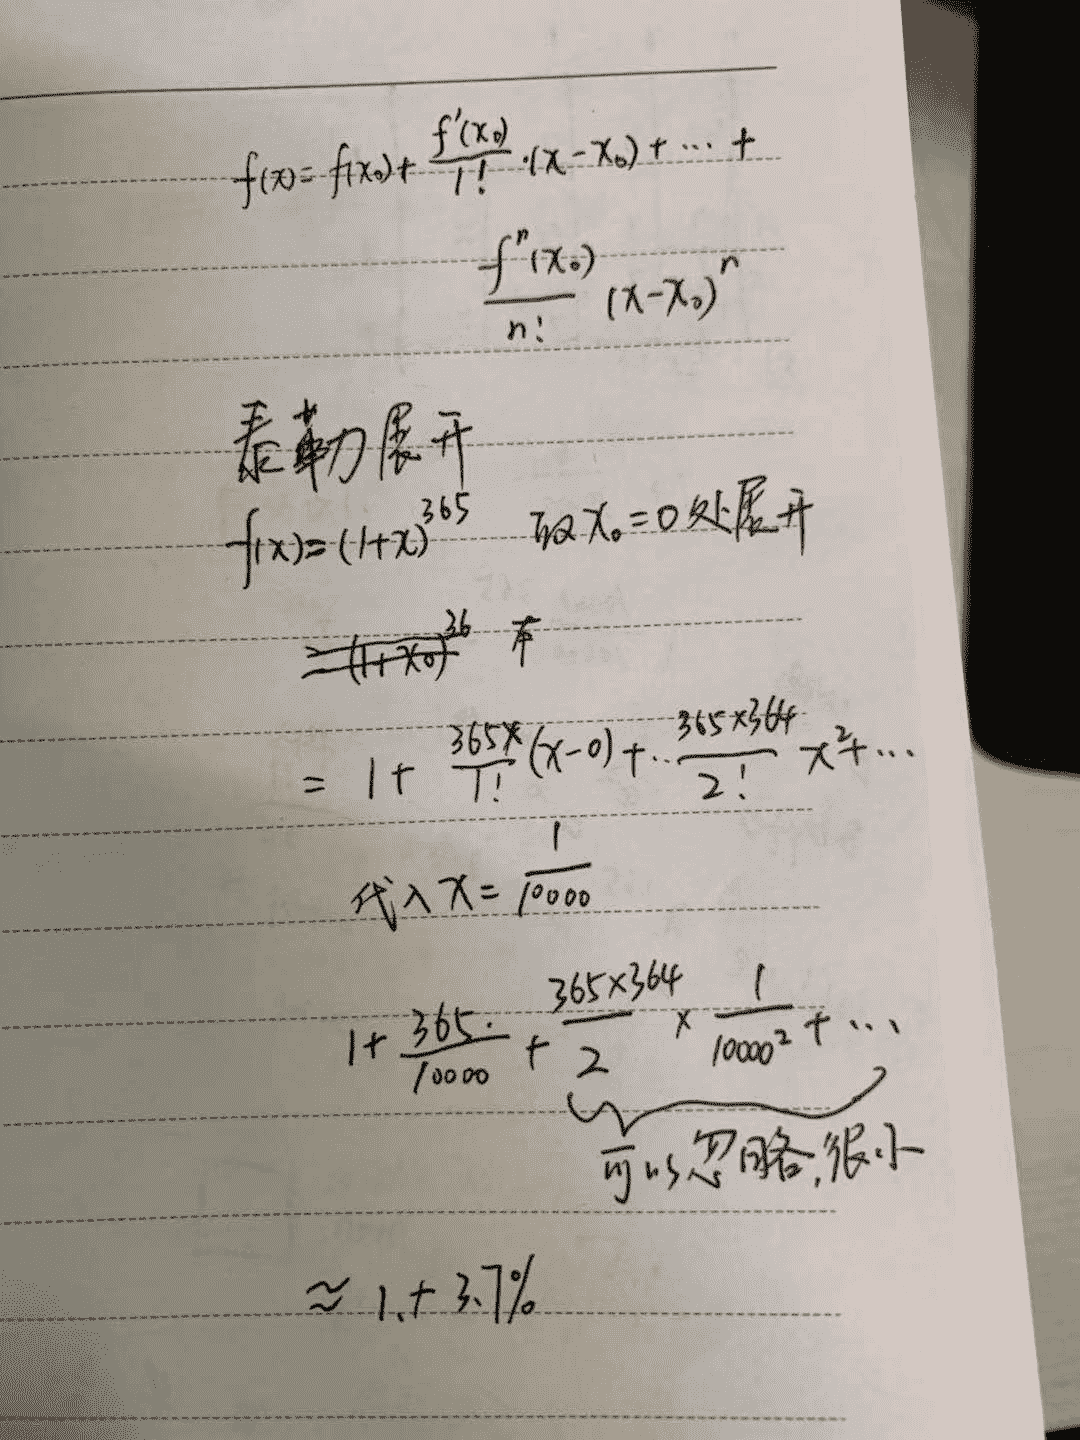 f(x)=f(x₀)+f'(x₀)/1!·(x-x₀)+…+
fⁿ(x₀)/n! (x-x₀)ⁿ
泰勒展开
f(x)=(1+x)³⁶⁵ 取x₀=0处展开
=(1+x₀)³⁶
=1+365x/1!(x-0)+..365×364/2! x²+…
代入x=1/10000
1+365./10000+365×364/2×1/10000²+…
可以忽略,很小
≈1.+3.7%